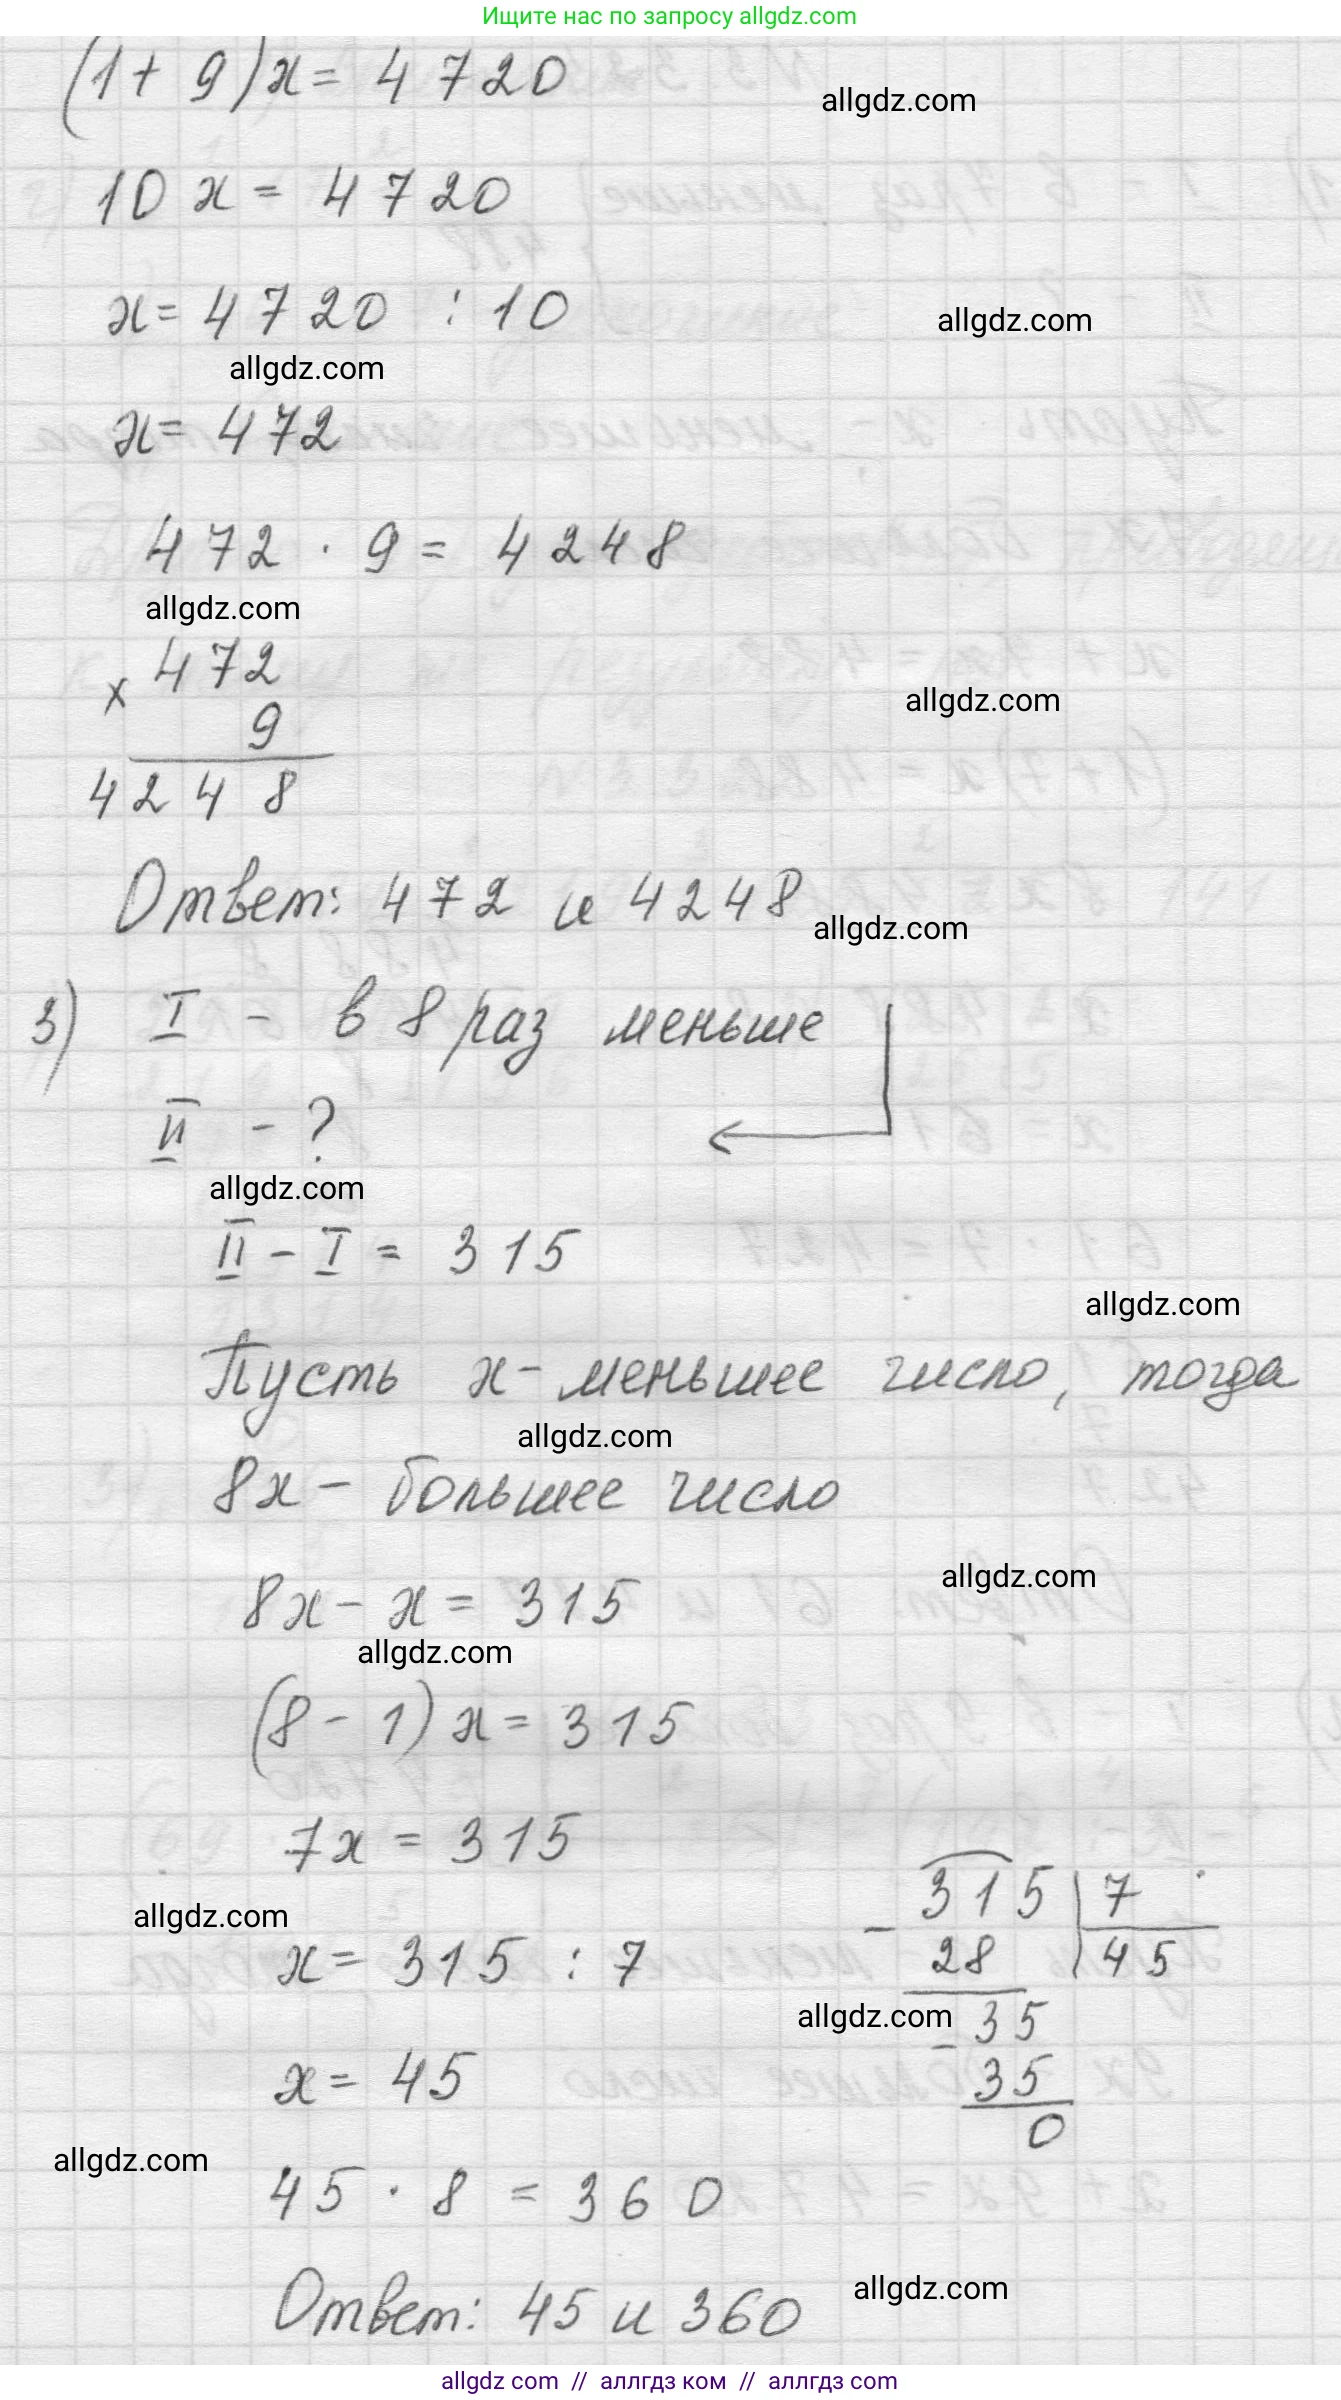 Ищите нас по запросу allgdz.com
(1 + 9)x = 4720
allgdz.com
10x = 4720
x = 4720 : 10
allgdz.com
allgdz.com
x = 472
472 · 9 = 4248
allgdz.com
× 472
allgdz.com
9
4248
Ответ: 472 и 4248
allgdz.com
3) I - в 8 раз меньше
II - ?
allgdz.com
II - I = 315
allgdz.com
Пусть x - меньшее число, тогда
allgdz.com
8x - большее число
allgdz.com
8x - x = 315
allgdz.com
(8 - 1)x = 315
7x = 315
315 | 7
allgdz.com
- 28 | 45
x = 315 : 7
allgdz.com
- 35
x = 45
35
0
allgdz.com
45 · 8 = 360
allgdz.com
Ответ: 45 и 360
allgdz com // аллгдз ком // аллгдз com